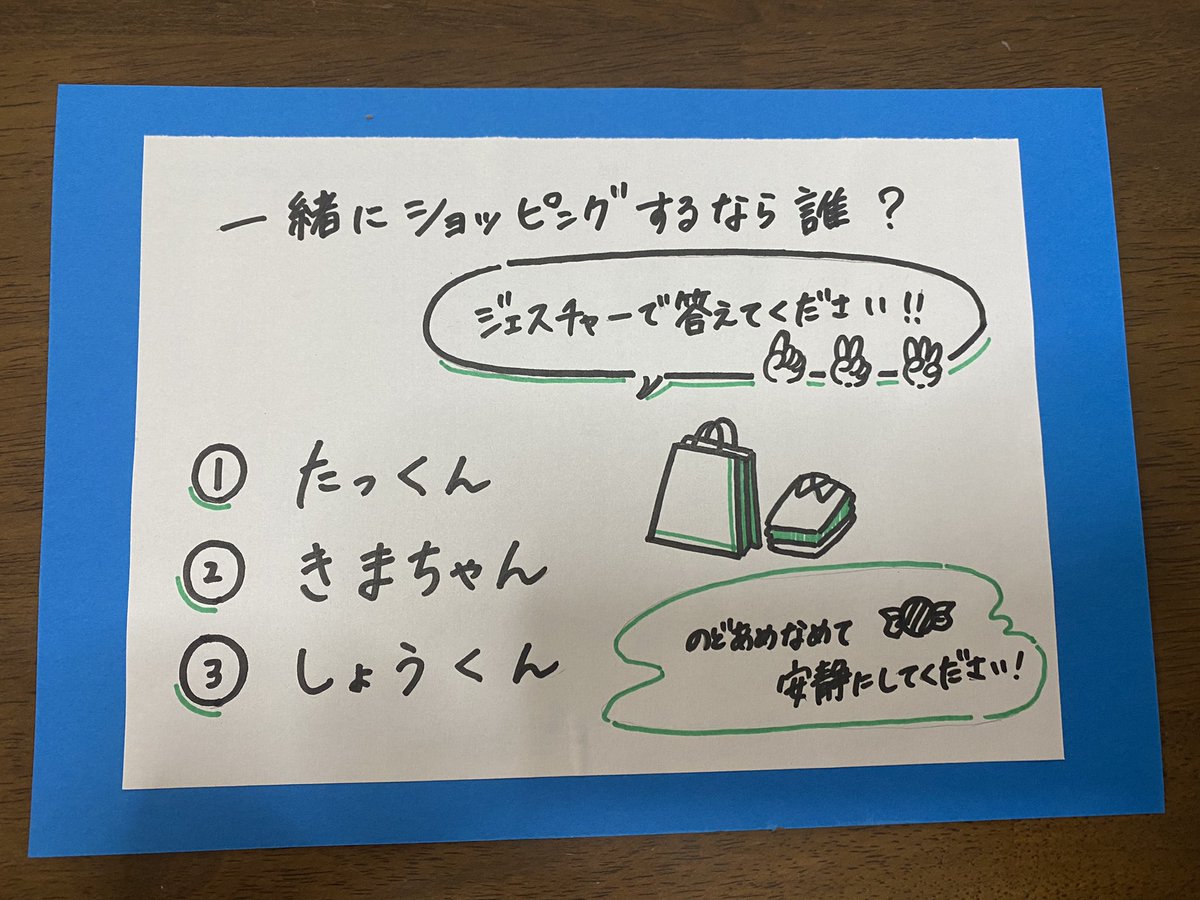 一緒にショッピングするなら誰？
ジェスチャーで答えてください!!
① たっくん
② きまちゃん
③ しょうくん
のどあめなめて
安静にしてください!